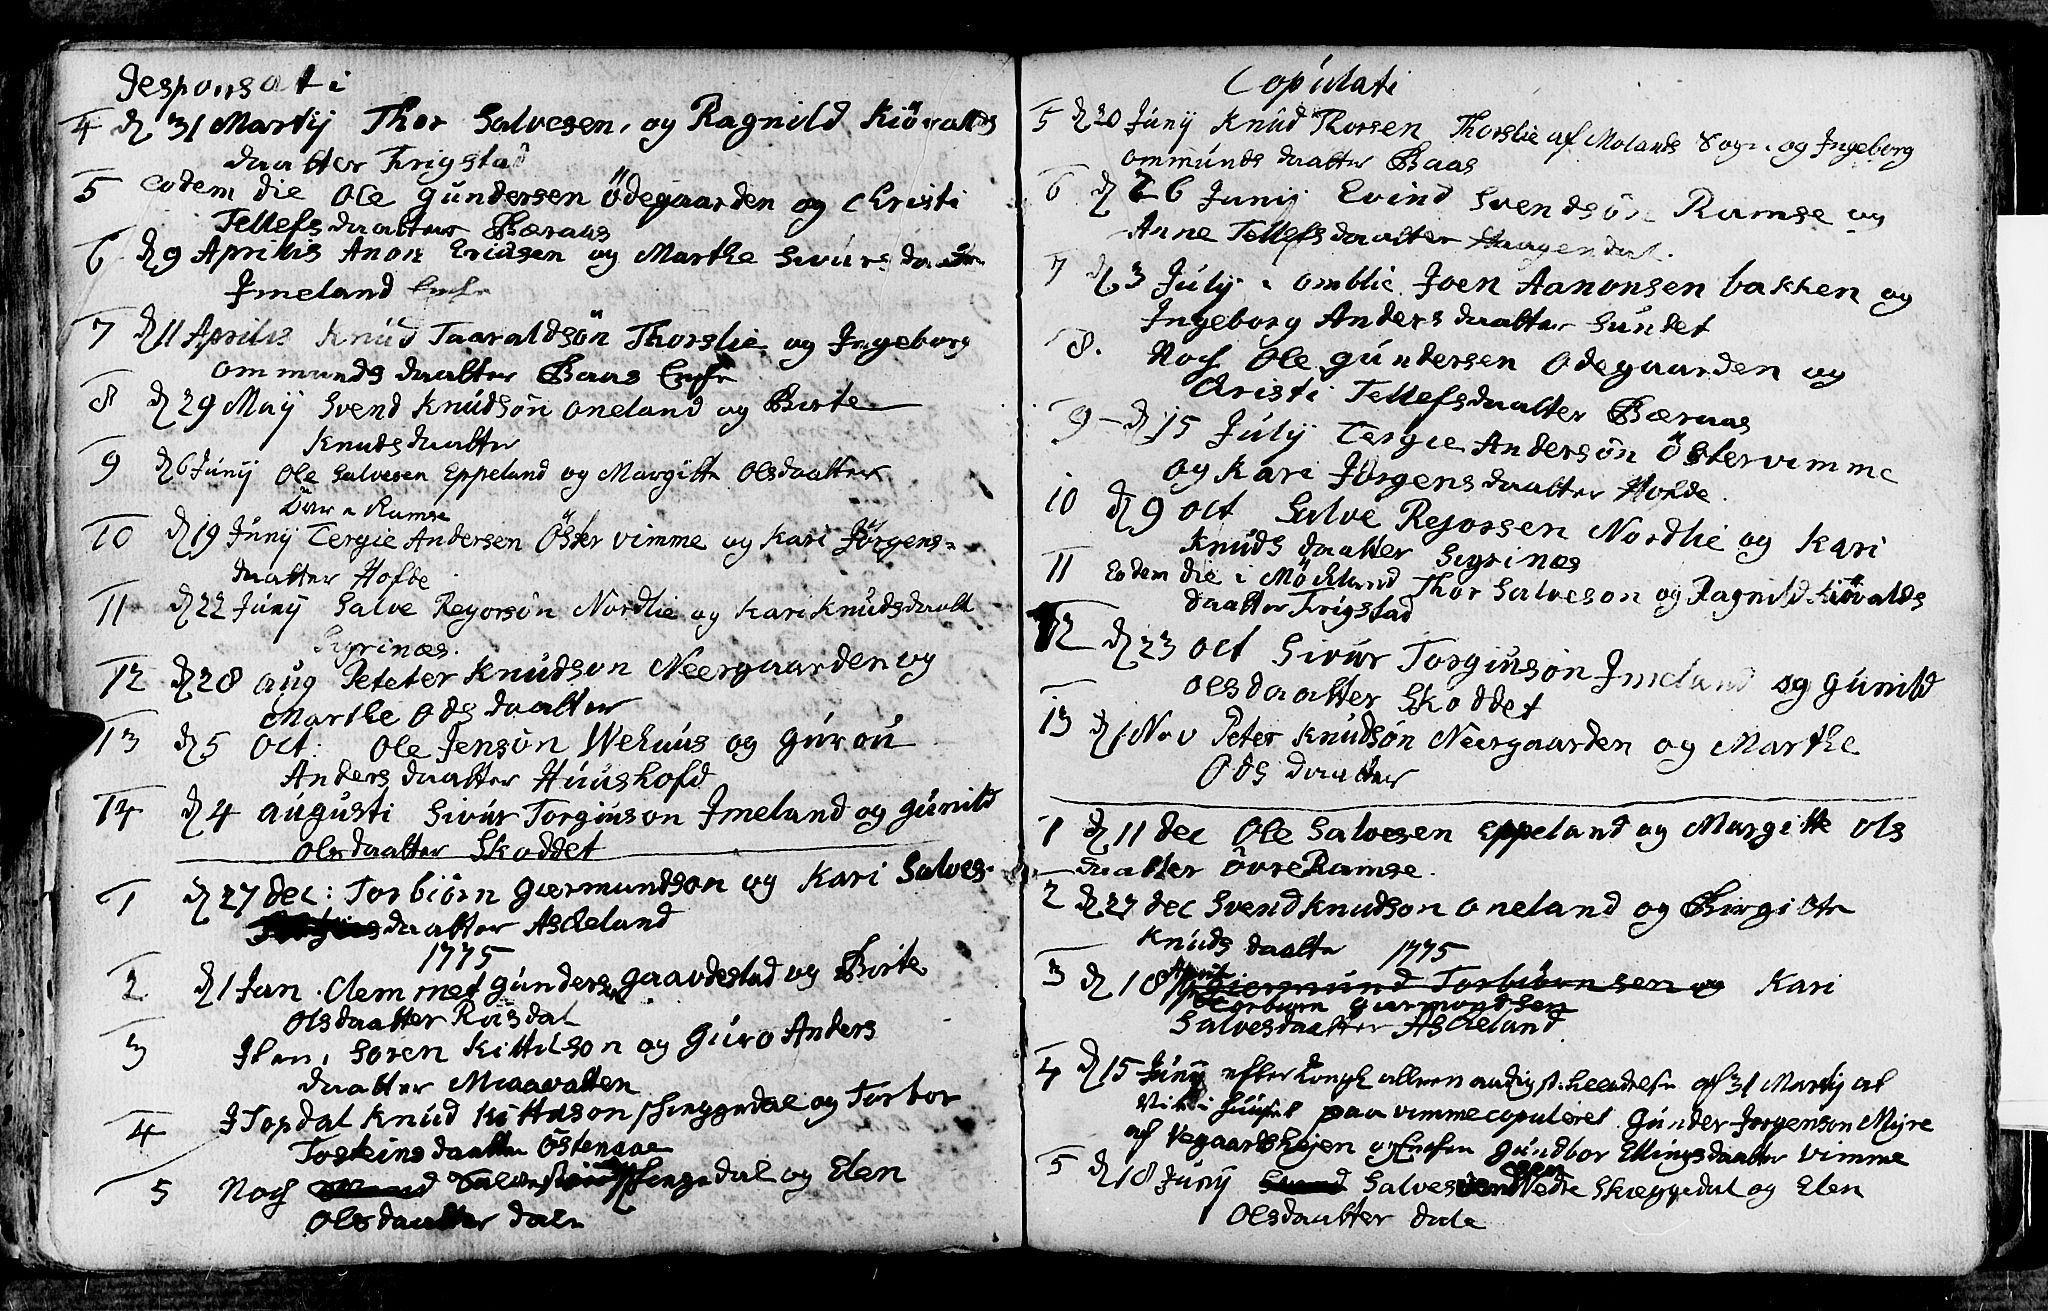 Desponsati
4 d 31 Martij Thor Salvesen, og Ragnild Kiövalds
daatter Frigstad
5 eodem die Ole Gundersen Ödegaarden og Christi
Tellefsdaatter Bæraas
6 d 9 Aprilis Anon Ericksen og Marthe Sivurs daatter
Imeland Encke
7 d 11 Aprilis Knud Taaraldsön Thorslie og Ingeborg
ommunds daatter Baas Encke
8 d 29 Maij Svend Knudsön Oneland og Birte
Knudsdaatter
9 d 6 Junij Ole Salvesen Eppeland og Margitte Olsdaatter
Övre Ramse
10 d 19 Junij Tergie Andersen Östervimme og Kari Jörgens=
daatter Hofde
11 d 22 Junij Salve Reyersön Nordlie og Kari Knudsdaatt
Syrinæs.
12 d 28 aug Peteter Knudson Neergaarden og
Marthe Ods daatter
13 d 5 Oct: Ole Jensön Wehuus og Gurou
Andersdaatter Huushofd
14 d 4 augusti Sivur Torginson Imeland og Gunild
Olsdaatter Skoddet
1 d 27 dec: Torbiörn Giermundson og Kari Salves-
daatter Askeland
1775
2 d 1 Jan. Clemmet Gunders. Gaardestad og Birte
Olsdaatter Riisdal
3 Item, Soren Kittilson og Guro Anders
daatter Miaavatten
4 I Topdal Knud Kittilson Skeggedal og Torbor
Tosteinsdaatter Östenaae
5 Noch og Elen
Olsdaatter dale
Copulati
5 d 20 Junij Knud Thorsen Thorslie af Molands Sogn og Ingeborg
ommunds daatter Baas
6 d 26 Junij Evind Svendsön Ramse og
Anne Tellefsdaatter Haagendal.
7 d 3 July i omblie Joen Aanonsen bakken og
Ingeborg Andersdaatter Sundet
8. Noch Ole Gundersen Odegaarden og
Christi Tellefsdaatter Bæraas
9 d 15 Julij Tergie Andersön Östervimme
og Kari Jörgensdaatter Hofde.
10 d 9 Oct Salve Reyersen Nordlie og Kari
Knuds daatter Syrinæs
11 Eodem die i Möckland Thor Salveson og Ragnild Kiövalds
daatter Frigstad
12 d 23 Oct Sivur Torginsön Imeland og Gunild
Olsdaatter Skoddet
13 d 1 Nov Peter Knudsön Neergaarden og Marthe
Ods daatter
1 d 11 dec Ole Salvesen Eppeland og Margitte Ols
daatter Övre Ramse.
2 d 27 dec Svend Knudson Oneland og Birgitte
Knuds daatter 1775
3 d 18 April Giermund Torbiörnsen og Kari
Torbiörn Giermondsen
Salvesdaatter Askeland
4 d 15 Junij efter Kongl allernaadigste af 31 Martij at
paa vimme copuleret Gunder Jorgenson Myre
af Vegaardshejen og Gundbor Ellingsdaatter Vimme
5 d 18 Junij Svend Salvesen Nedre Skeggedal og Elen
Olsdaatter dale